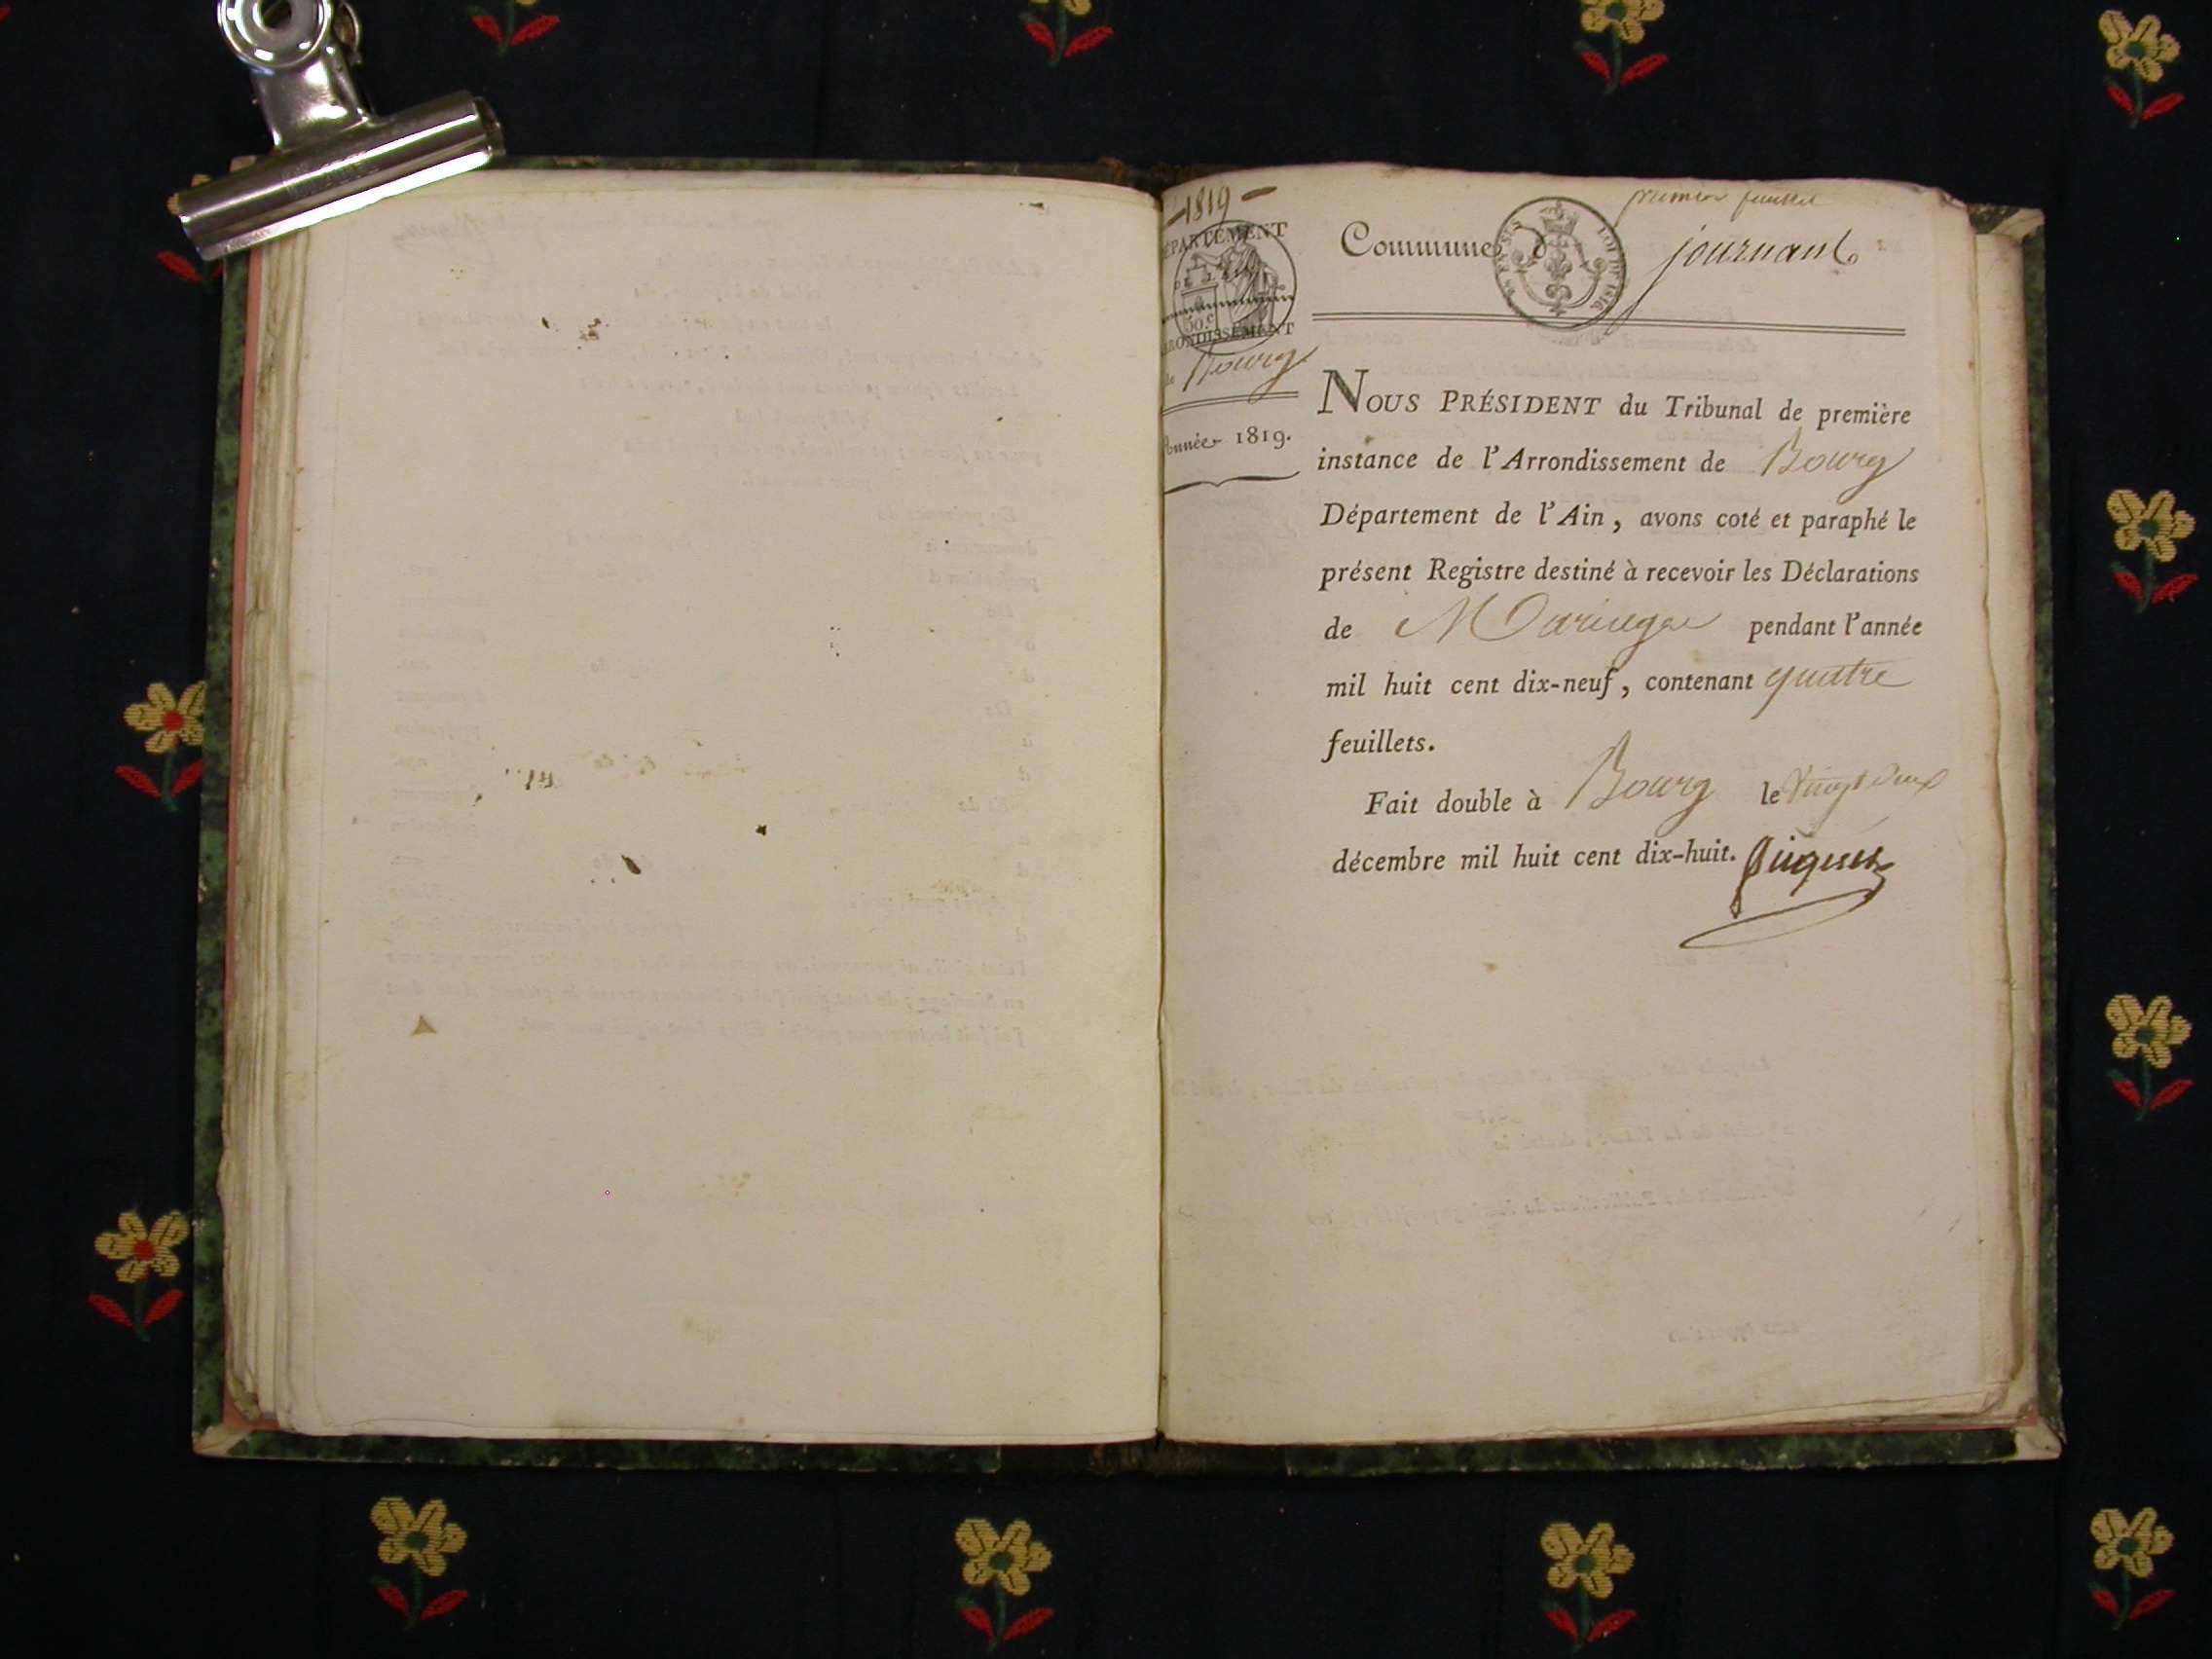 -1819-
premier feuillet
DÉPARTEMENT
DE L'AIN
50.c
ARRONDISSEMENT
de Bourg
Année 1819.
Commune d journans
LOI DE 1816.
1
NOUS PRÉSIDENT du Tribunal de première
instance de l'Arrondissement de Bourg
Département de l'Ain, avons coté et paraphé le
présent Registre destiné à recevoir les Déclarations
de Mariage pendant l'année
mil huit cent dix-neuf, contenant quatre
feuillets.
Fait double à Bourg le vingt deux
décembre mil huit cent dix-huit.